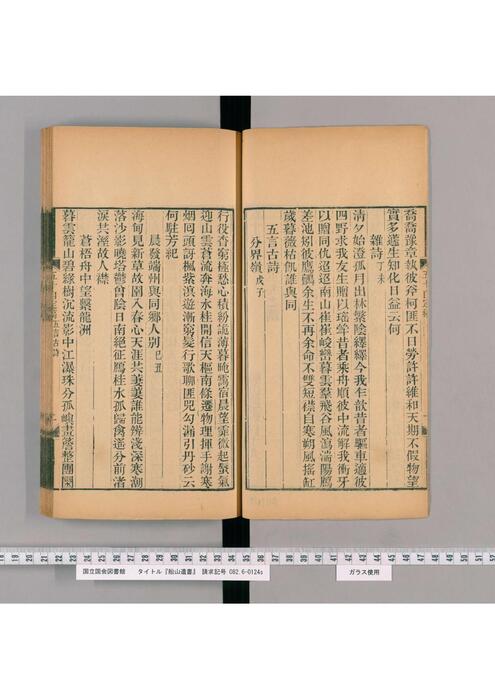 喬喬豫章執彼斧柯匪不日勞許許維和天期不假物望
實多蓬生知化日益云何
雜詩丁未
清夕始澄孤月出林繁陰繹繹今我乍歆昔者驅車適彼
四野求我友生贈以瑤斝昔者乘舟順彼中流解我衡牙
以贈同仇迢迢南山崔崔峻巒暮雲羣飛谷風鴻湍陽鴈
差池別彼鷹鸇余生不再余命不雙短襟自寒朔風搖缸
歲暮薇枯飢誰與同
五言古詩
分界嶺戊子
行役杳窮極悲心積紛詭薄暮晚雲宿晨望寒微起蜃氣
迎山雲蒼流奔海水桂開信天樞南條遷物理揮手謝寒
烟回頭訝楓紫滇遊漸窮髮行歌聊匪兕勾漏引丹砂云
何駐芳杞
晨發端州與同鄉人別己丑
海甸見新草故園入春心天涯共萋萋誰能辨淺深寒潮
落沙影曉塔鬱曾陰日南絕征鴈桂水孤歸禽遙分前渚
淚共溼故人襟
蒼梧舟中望繫龍洲
暮雲籠山碧綠樹沉流影中江瀑珠分孤嶼畫蕩整團團
国立国会図書館 タイトル『船山遺書』 請求記号 082.6-0124s
ガラス使用